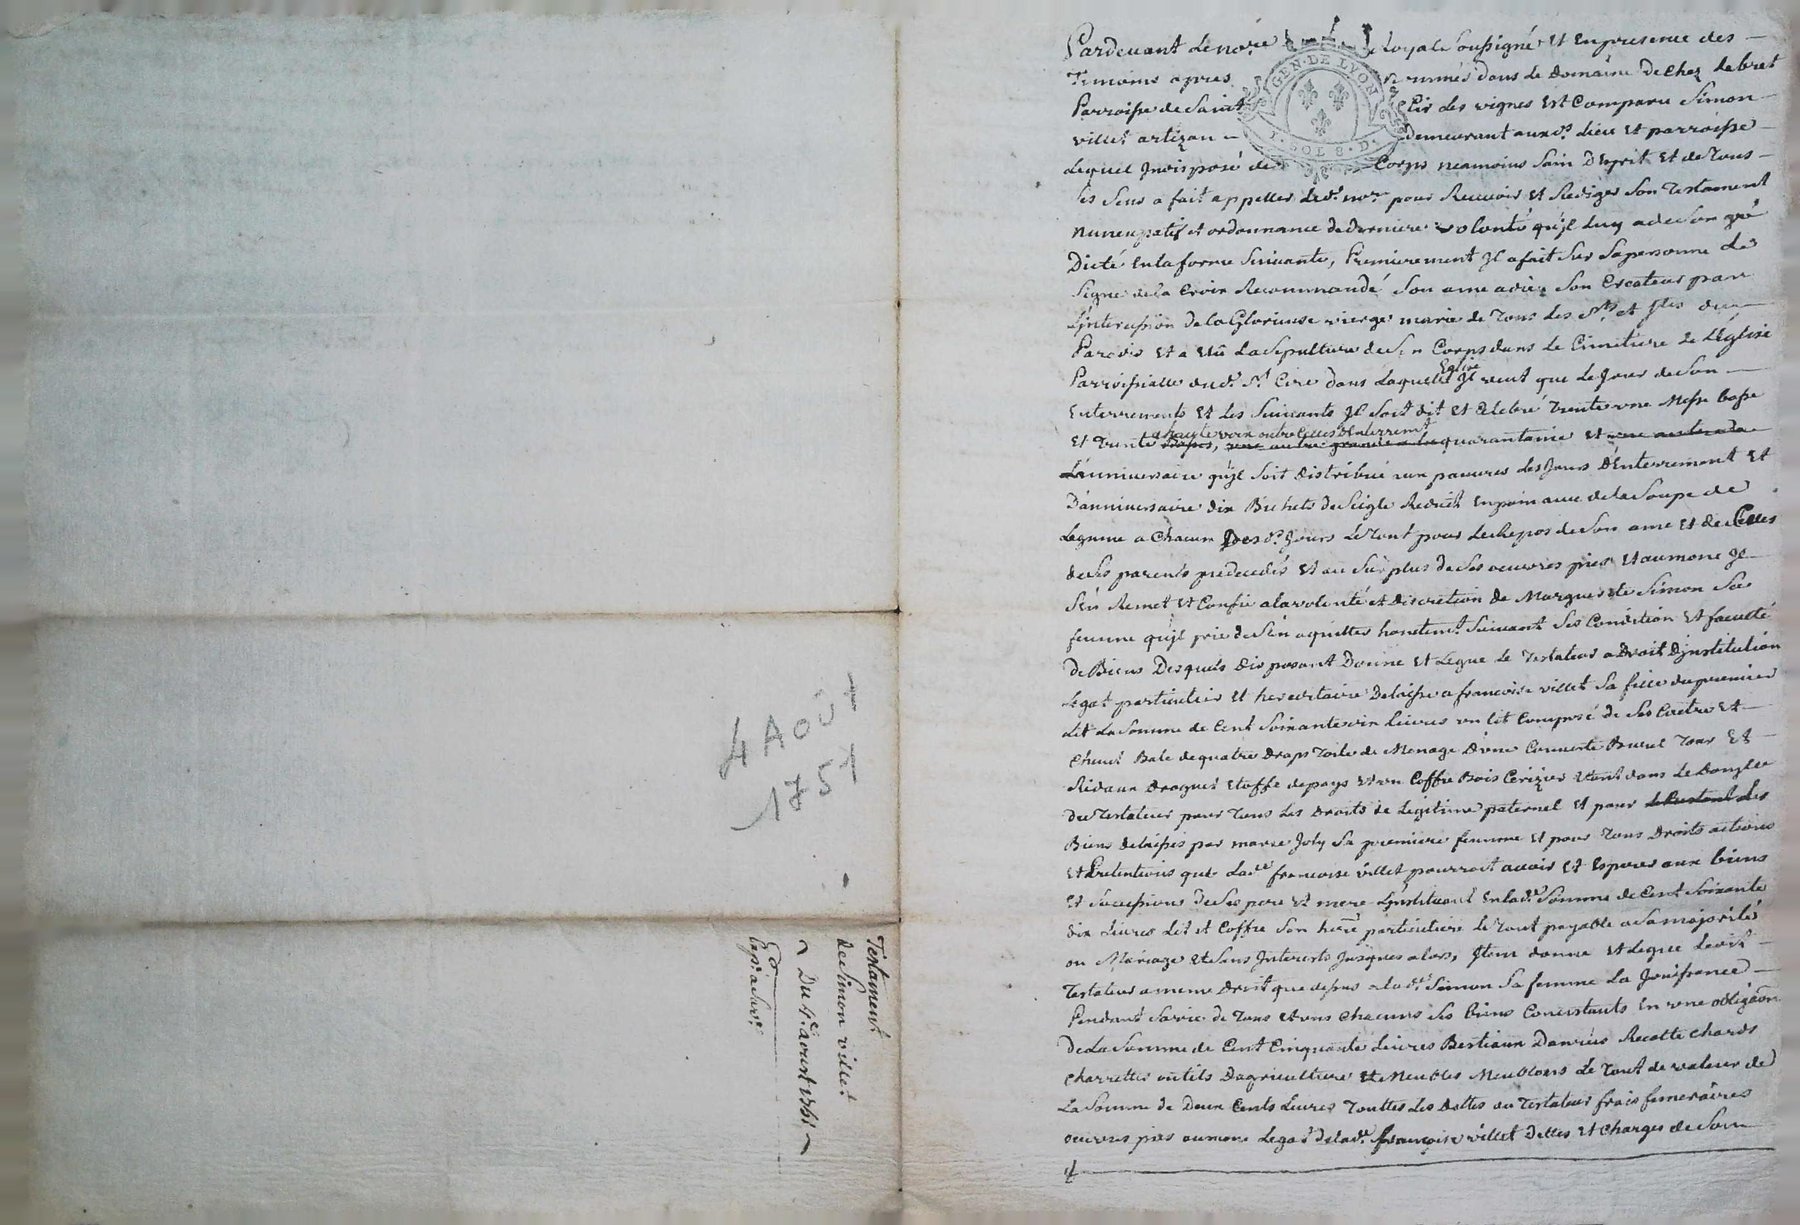 4 AOÛT
1751
Testament
de Simon villet
Du 4e. aoust 1751
Exp. a
GEN. DE LYON
SOLS. D.
Pardevant Le nore Royale soussigné Et En presence des
Temoins apres nommés dans Le Domaine De chez Lebret
Parroisse de Saint Cir des vignes Est Comparu Simon
villet artizan demeurant auxd. lieu Et parroisse
Lequel Indisposé de Corps neamoins Sain D'Esprit Et de Tous
ses Sens a fait appeller Led. nore pour Recevoir Et Rediger Son Testament
nuncupatif et ordonnance de derniere volonté qu'jl Luy a de Son gré
Dicté En la forme Suivante, Premierement Jl a fait Sur Sa personne Le
Signe de la Croix Recommandé Son ame a dieu Son Createur par
L'intercession De la Glorieuse vierge marie de Tous Les Sts et Stes du
Paradis Et a Elû La Sepulture de Son Corps dans Le Cimetiere de L'Eglise
Parroissialle dud. St. Cire dans Laquelle Eglise Jl veut que Le Jour de Son
Enterrements Et Les Suivants Jl Soit dit Et Celebré Trente une Messe basse
Et Trente a haute voix outre Celles D'Enterremt quarantaine Et
L'anniversaire qu'jl Soit distribué aux pauvres Les Jours D'Enterrement Et
D'anniversaire dix Bichets de Seigle Reduit En pain avec de la Soupe de
Legume a Chacun Desd. Jours Le Tout pour Le Repos de Son ame Et de Celles
de Ses parents predecedés Et au Surplus de Ses oeuvres pies Et aumone Jl
S'en Remet Et Confie a la volonté et Discretion de Marguerite Simon Sa
femme qu'jl prie de S'en aquitter honetemt. Suivant Ses Condition Et faculté
De Biens Desquels Disposant Donne Et Legue Le Testateur a Droit D'institution
Legat particulier Et hereditaire Delaisse a francoise villet Sa fille du premier
Lit La Somme de Cent Soixante dix Livres un Lit Composé de Ses Coetre Et
Chevet Bale de quatre Draps Toile de Menage D'une Couverte Burel Tour Et
Rideaux Droguet Etoffe de pays Et un Coffre Bois Cerizier Etant dans Le Domicile
du Testateur pour Tous Les Droits de Legitime paternel Et pour
Biens delaissés par marie Joly Sa premiere femme Et pour Tous Droits actions
Et Pretentions que Lade francoise villet pourroit avoir Et Esperer aux biens
Et Sucessions de Ses pere Et mere L'instituant En lade. Somme de Cent Soixante
dix Livres Lit et Coffre Son here particuliere Le Tout payable a Sa majorité
ou Mariage Et Sans Interests Jusques alors, Item donne Et Legue Ledit
Testateur a meme Droit que dessus a lade Simon Sa femme La Jouissance
Pendant Sa vie de Tous Et uns Chacuns Ses biens Concistants En une obligaon
De La Somme de Cent Cinquante Livres Bestiaux Danrées Recolte Chards
Charrettes outils D'agriculture Et Meubles Meublans Le Tout de valeur de
La Somme de Deux Cents Livres Touttes Les Dettes du Testateur frais funeraires
oeuvres pies aumone Legat de lade. françoise villet Dettes Et Charges de Son